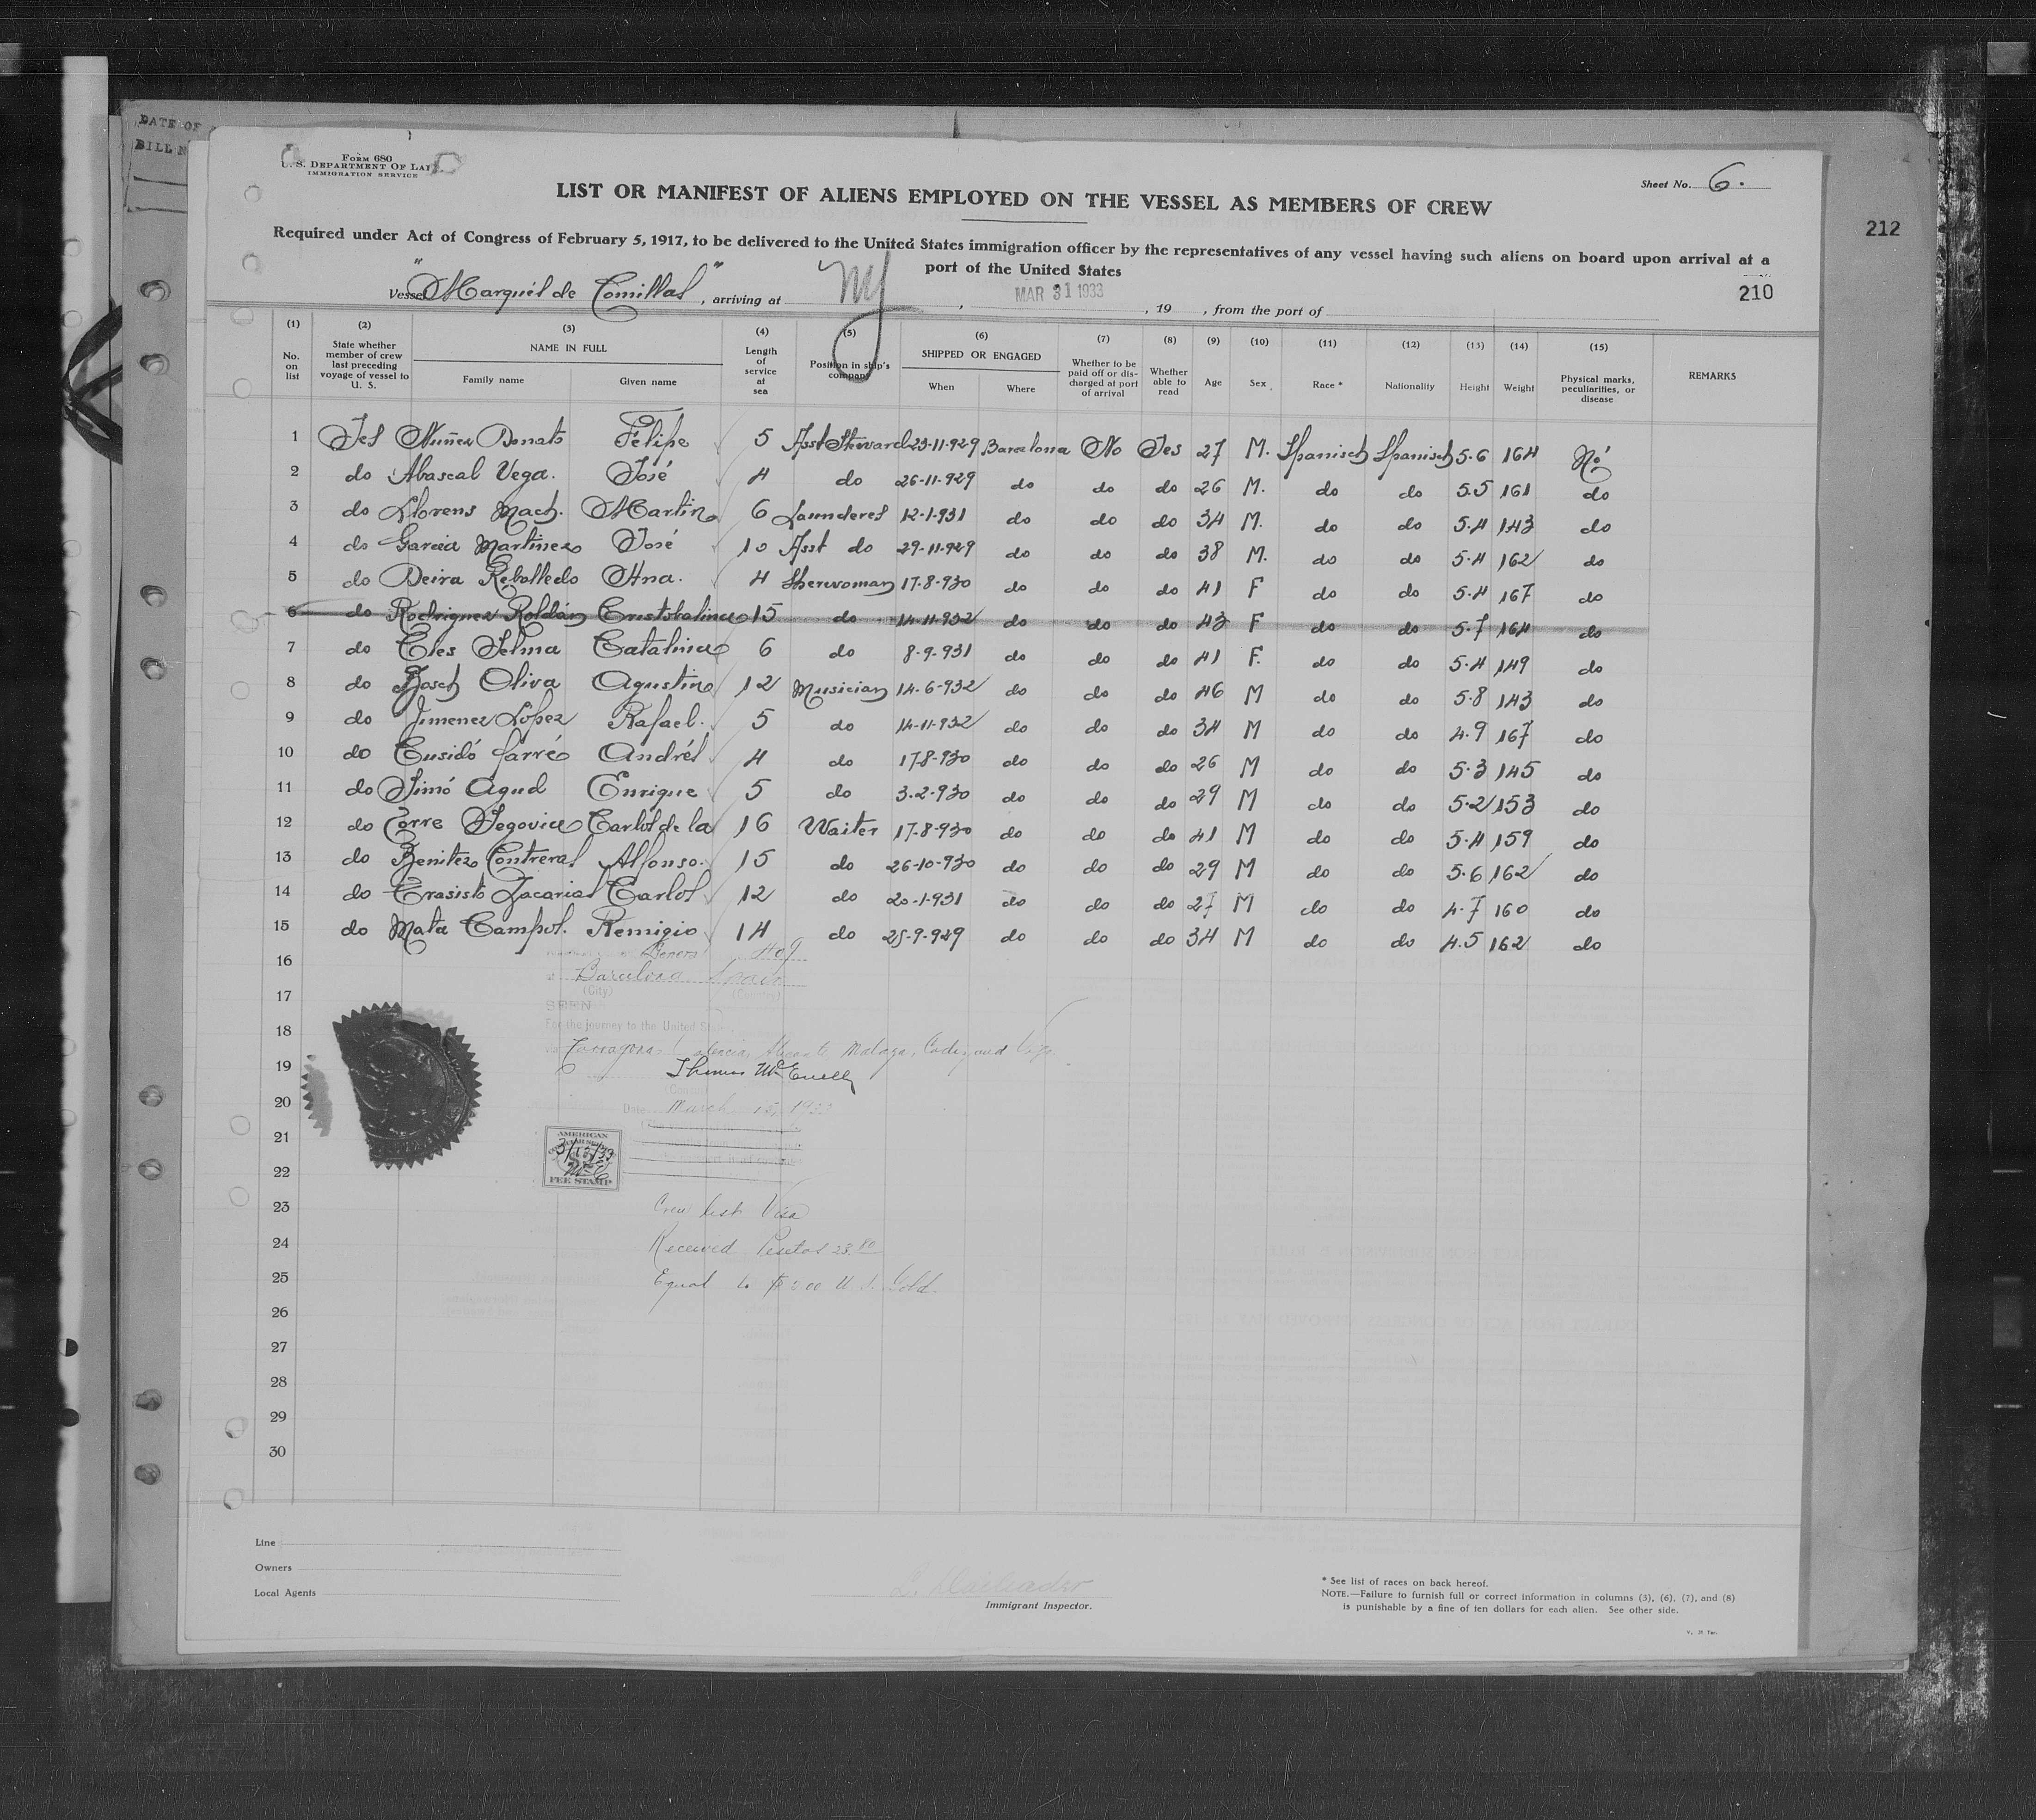 DATE OF
BILL N
Form 680
U. S. Department Of La
IMMIGRATION SERVICE
Sheet No. 6.
LIST OR MANIFEST OF ALIENS EMPLOYED ON THE VESSEL AS MEMBERS OF CREW
212
Required under Act of Congress of February 5, 1917, to be delivered to the United States immigration officer by the representatives of any vessel having such aliens on board upon arrival at a
port of the United States
210
Vessel "Marqués de Comillas", arriving at NY, MAR 31 1933, 19 , from the port of
(1) (2) (3) (4) (5) (6) (7) (8) (9) (10) (11) (12) (13) (14) (15)
No. on list State whether member of crew last preceding voyage of vessel to U. S. NAME IN FULL Family name Given name Length of service at sea Position in ship's company SHIPPED OR ENGAGED When Where Whether to be paid off or discharged at port of arrival Whether able to read Age Sex Race * Nationality Height Weight Physical marks, peculiarities, or disease REMARKS
1 Yes Nuñez Donato Felipe 5 Asst Steward 23-11-929 Barcelona No Yes 27 M. Spanisch Spanisch 5.6 164 No
2 do Abascal Vega. José 4 do 26-11-929 do do do 26 M. do do 5.5 161 do
3 do Llorens Mach. Martin 6 Launderes 12-1-931 do do do 34 M. do do 5.4 143 do
4 do Garcia Martinez José 10 Asst do 29-11-929 do do do 38 M. do do 5.4 162 do
5 do Neira Rebolledo Ana. 4 Sherwoman 17-8-930 do do do 41 F do do 5.4 167 do
6 do Rodriguez Roldán Cristobalina 15 do 14-11-932 do do do 43 F do do 5.7 164 do
7 do Catalina 6 do 8-9-931 do do do 41 F. do do 5.4 149 do
8 do Bosch Oliva Agustin 12 Musician 14-6-932 do do do 46 M do do 5.8 143 do
9 do Jimenez López Rafael. 5 do 14-11-932 do do do 34 M do do 4.9 167 do
10 do Cusidó Farré Andrés 4 do 17-8-930 do do do 26 M do do 5.3 145 do
11 do Simó Agud Enrique 5 do 3-2-930 do do do 29 M do do 5.2 153 do
12 do Torre Segovia Carlos de la 16 Waiter 17-8-930 do do do 41 M do do 5.4 159 do
13 do Benitez Contreras Alfonso. 15 do 26-10-930 do do do 29 M do do 5.6 162 do
14 do Zacarias Carlos 12 do 20-1-931 do do do 27 M do do 4.7 160 do
15 do Mata Campos. Remigio 14 do 25-9-929 do do do 34 M do do 4.5 162 do
16
at Barcelona Spain
(City) (Country)
17
SEEN
18 For the journey to the United St
Tarragona, Valencia, Alicante Malaga, Cadiz, and Vigo
19 Thomas McEnelly
20 Date March 13, 1933
21
AMERICAN
3/13/33
McE
FEE STAMP
22
23 Crew list Visa
24 Received Pesetas 23.80
25 Equal to U. S. Gold.
26
27
28
29
30
Line
Owners
Local Agents
Immigrant Inspector.
* See list of races on back hereof.
NOTE.—Failure to furnish full or correct information in columns (3), (6), (7), and (8)
is punishable by a fine of ten dollars for each alien. See other side.